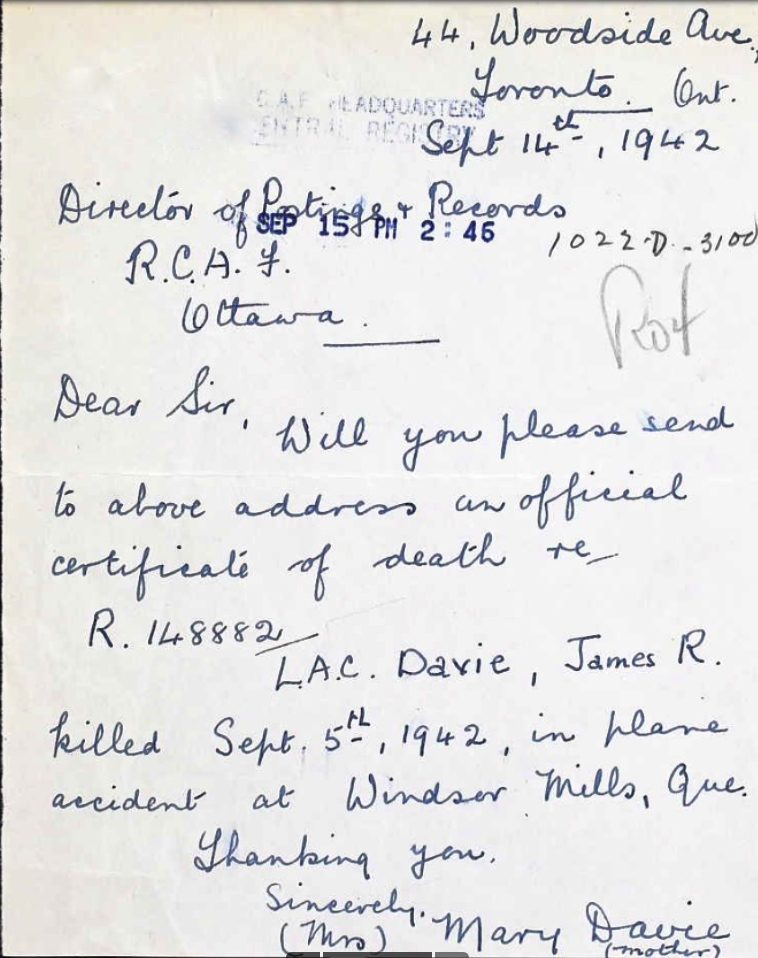 44, Woodside Ave.,
Toronto. Ont.
C.A.F. HEADQUARTERS
CENTRAL REGISTRY
Sept 14th, 1942
Director of Postings & Records
SEP 15 PM 2:46
1022-D-3100
R.C.A.F.
Ottawa.
Dear Sir,
Will you please send
to above address an official
certificate of death re
R. 148882
L.A.C. Davie, James R.
killed Sept. 5th, 1942, in plane
accident at Windsor Mills, Que.
Thanking you.
Sincerely,
(Mrs) Mary Davie
(mother)